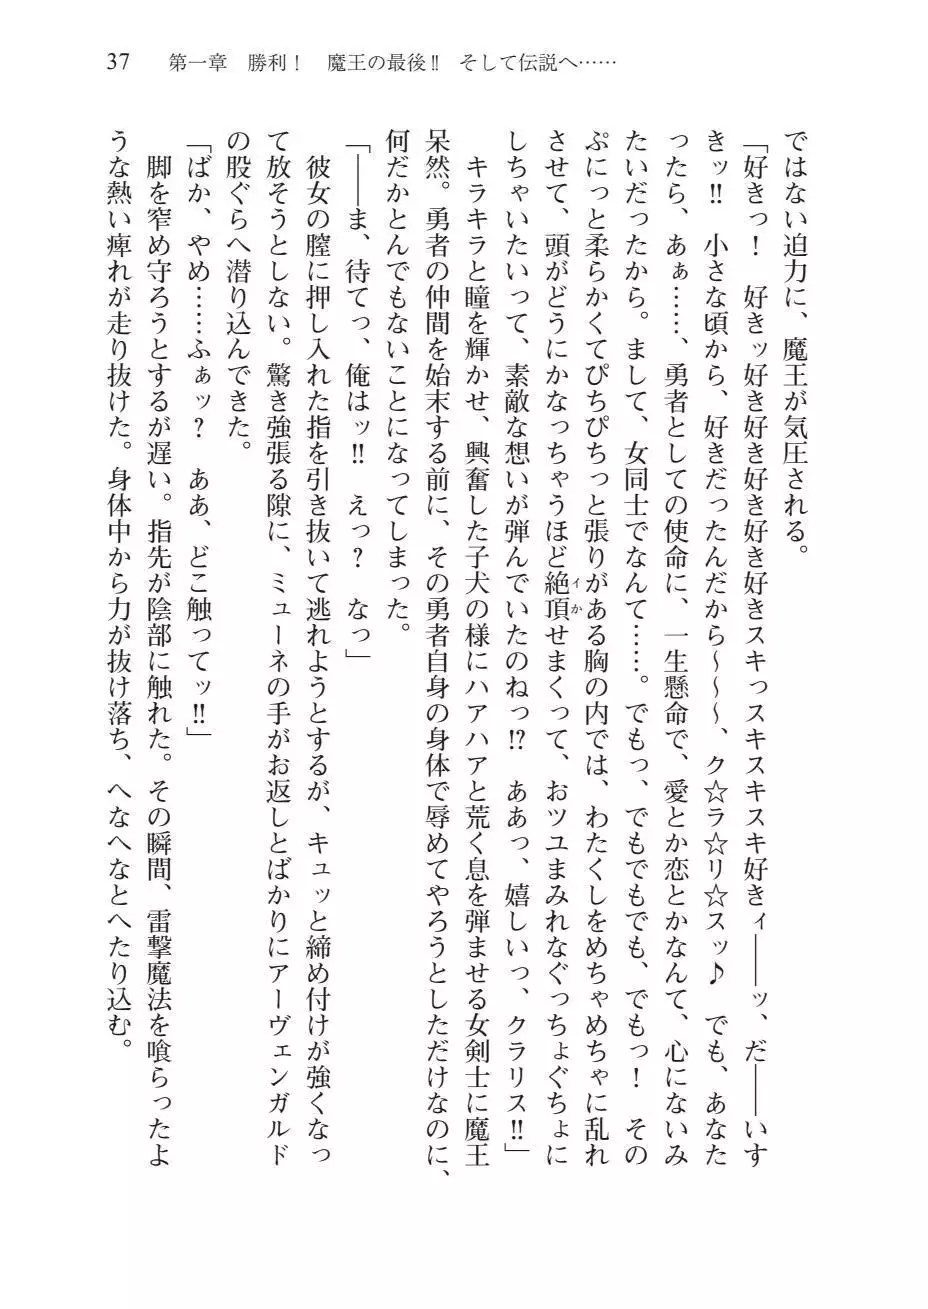 37　第一章　勝利！　魔王の最後‼　そして伝説へ……
ではない迫力に、魔王が気圧される。
「好きっ！　好きッ好き好き好き好き好きスキっスキスキスキ好きィ――ッ、だ――いす
きッ‼　小さな頃から、好きだったんだから～～～、ク☆ラ☆リ☆スッ♪　でも、あなた
ったら、あぁ……、勇者としての使命に、一生懸命で、愛とか恋とかなんて、心にないみ
たいだったから。まして、女同士でなんて……。でもっ、でもでもでも、でもっ！　その
ぷにっと柔らかくてぴちぴちっと張りがある胸の内では、わたくしをめちゃめちゃに乱れ
させて、頭がどうにかなっちゃうほど絶頂（イか）せまくって、おツユまみれなぐっちょぐちょに
しちゃいたいって、素敵な想いが弾んでいたのねっ⁉　ああっ、嬉しいっ、クラリス‼」
　キラキラと瞳を輝かせ、興奮した子犬の様にハアハアと荒く息を弾ませる女剣士に魔王
呆然。勇者の仲間を始末する前に、その勇者自身の身体で辱めてやろうとしただけなのに、
何だかとんでもないことになってしまった。
「――ま、待てっ、俺はッ‼　えっ？　なっ」
　彼女の膣に押し入れた指を引き抜いて逃れようとするが、キュッと締め付けが強くなっ
て放そうとしない。驚き強張る隙に、ミューネの手がお返しとばかりにアーヴェンガルド
の股ぐらへ潜り込んできた。
「ばか、やめ……ふぁッ？　ああ、どこ触ってッ‼」
　脚を窄め守ろうとするが遅い。指先が陰部に触れた。その瞬間、雷撃魔法を喰らったよ
うな熱い痺れが走り抜けた。身体中から力が抜け落ち、へなへなとへたり込む。